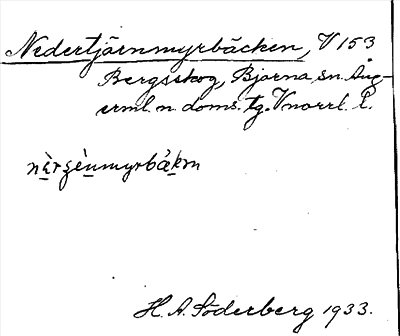 Nedertjärnmyrbäcken, V 153
Bergsskog, Björna sn. Ång-
erml. n. doms. tg. Vnorrl. l.
H. A. Söderberg 1933.